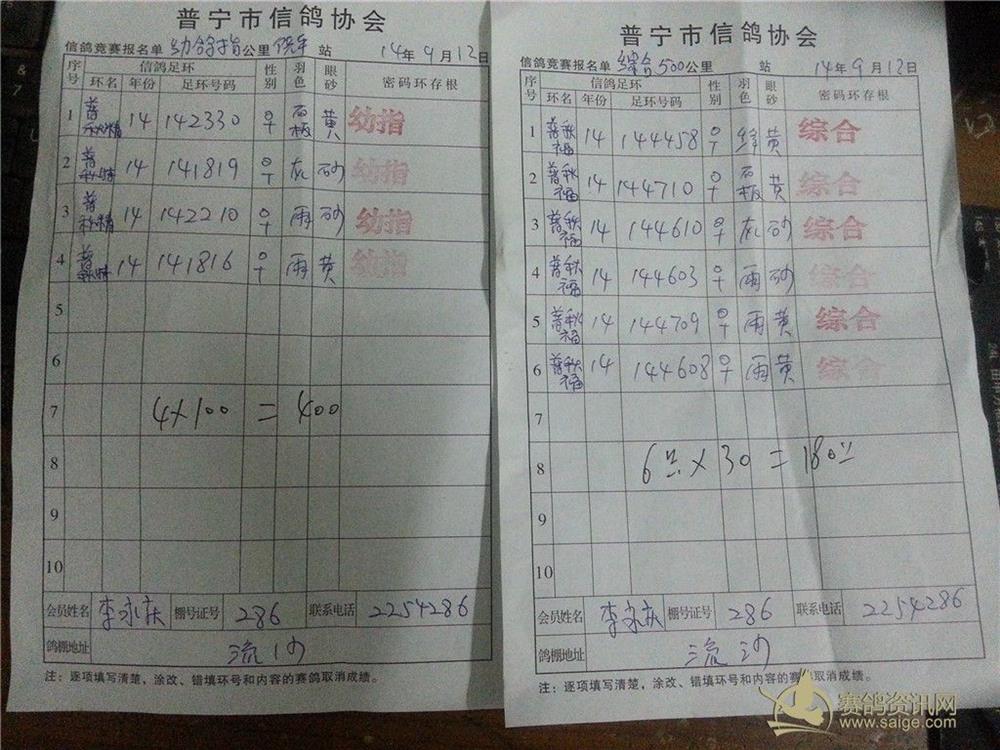 普宁市信鸽协会
信鸽竞赛报名单 幼鸽指公里 站 14年9月12日
序号 信鸽足环 性别 羽色 眼砂 密码环存根
环名 年份 足环号码
1 普秋精 14 142330 ♀ 石板 黄 幼指
2 普秋 14 141819 ♀ 灰 砂 幼指
3 普秋精 14 142210 ♀ 雨 砂 幼指
4 普秋 14 141816 ♀ 雨 黄 幼指
5
6
7 4×100=400
8
9
10
会员姓名 李永庆 棚号证号 286 联系电话 2254286
鸽棚地址 流沙
注：逐项填写清楚，涂改、错填环号和内容的赛鸽取消成绩。
普宁市信鸽协会
信鸽竞赛报名单 综合500公里 站 14年9月12日
序号 信鸽足环 性别 羽色 眼砂 密码环存根
环名 年份 足环号码
1 普秋福 14 144458 ♀ 绛 黄 综合
2 普秋福 14 144710 ♀ 石板 黄 综合
3 普秋福 14 144610 ♀ 灰 砂 综合
4 普秋福 14 144603 ♀ 雨 砂 综合
5 普秋福 14 144709 ♀ 雨 黄 综合
6 普秋福 14 144608 ♀ 雨 黄 综合
7
8 6×30=180
9
10
会员姓名 李永庆 棚号证号 286 联系电话 2254286
鸽棚地址 流沙
注：逐项填写清楚，涂改、错填环号和内容的赛鸽取消成绩。
赛鸽资讯网
www.saige.com